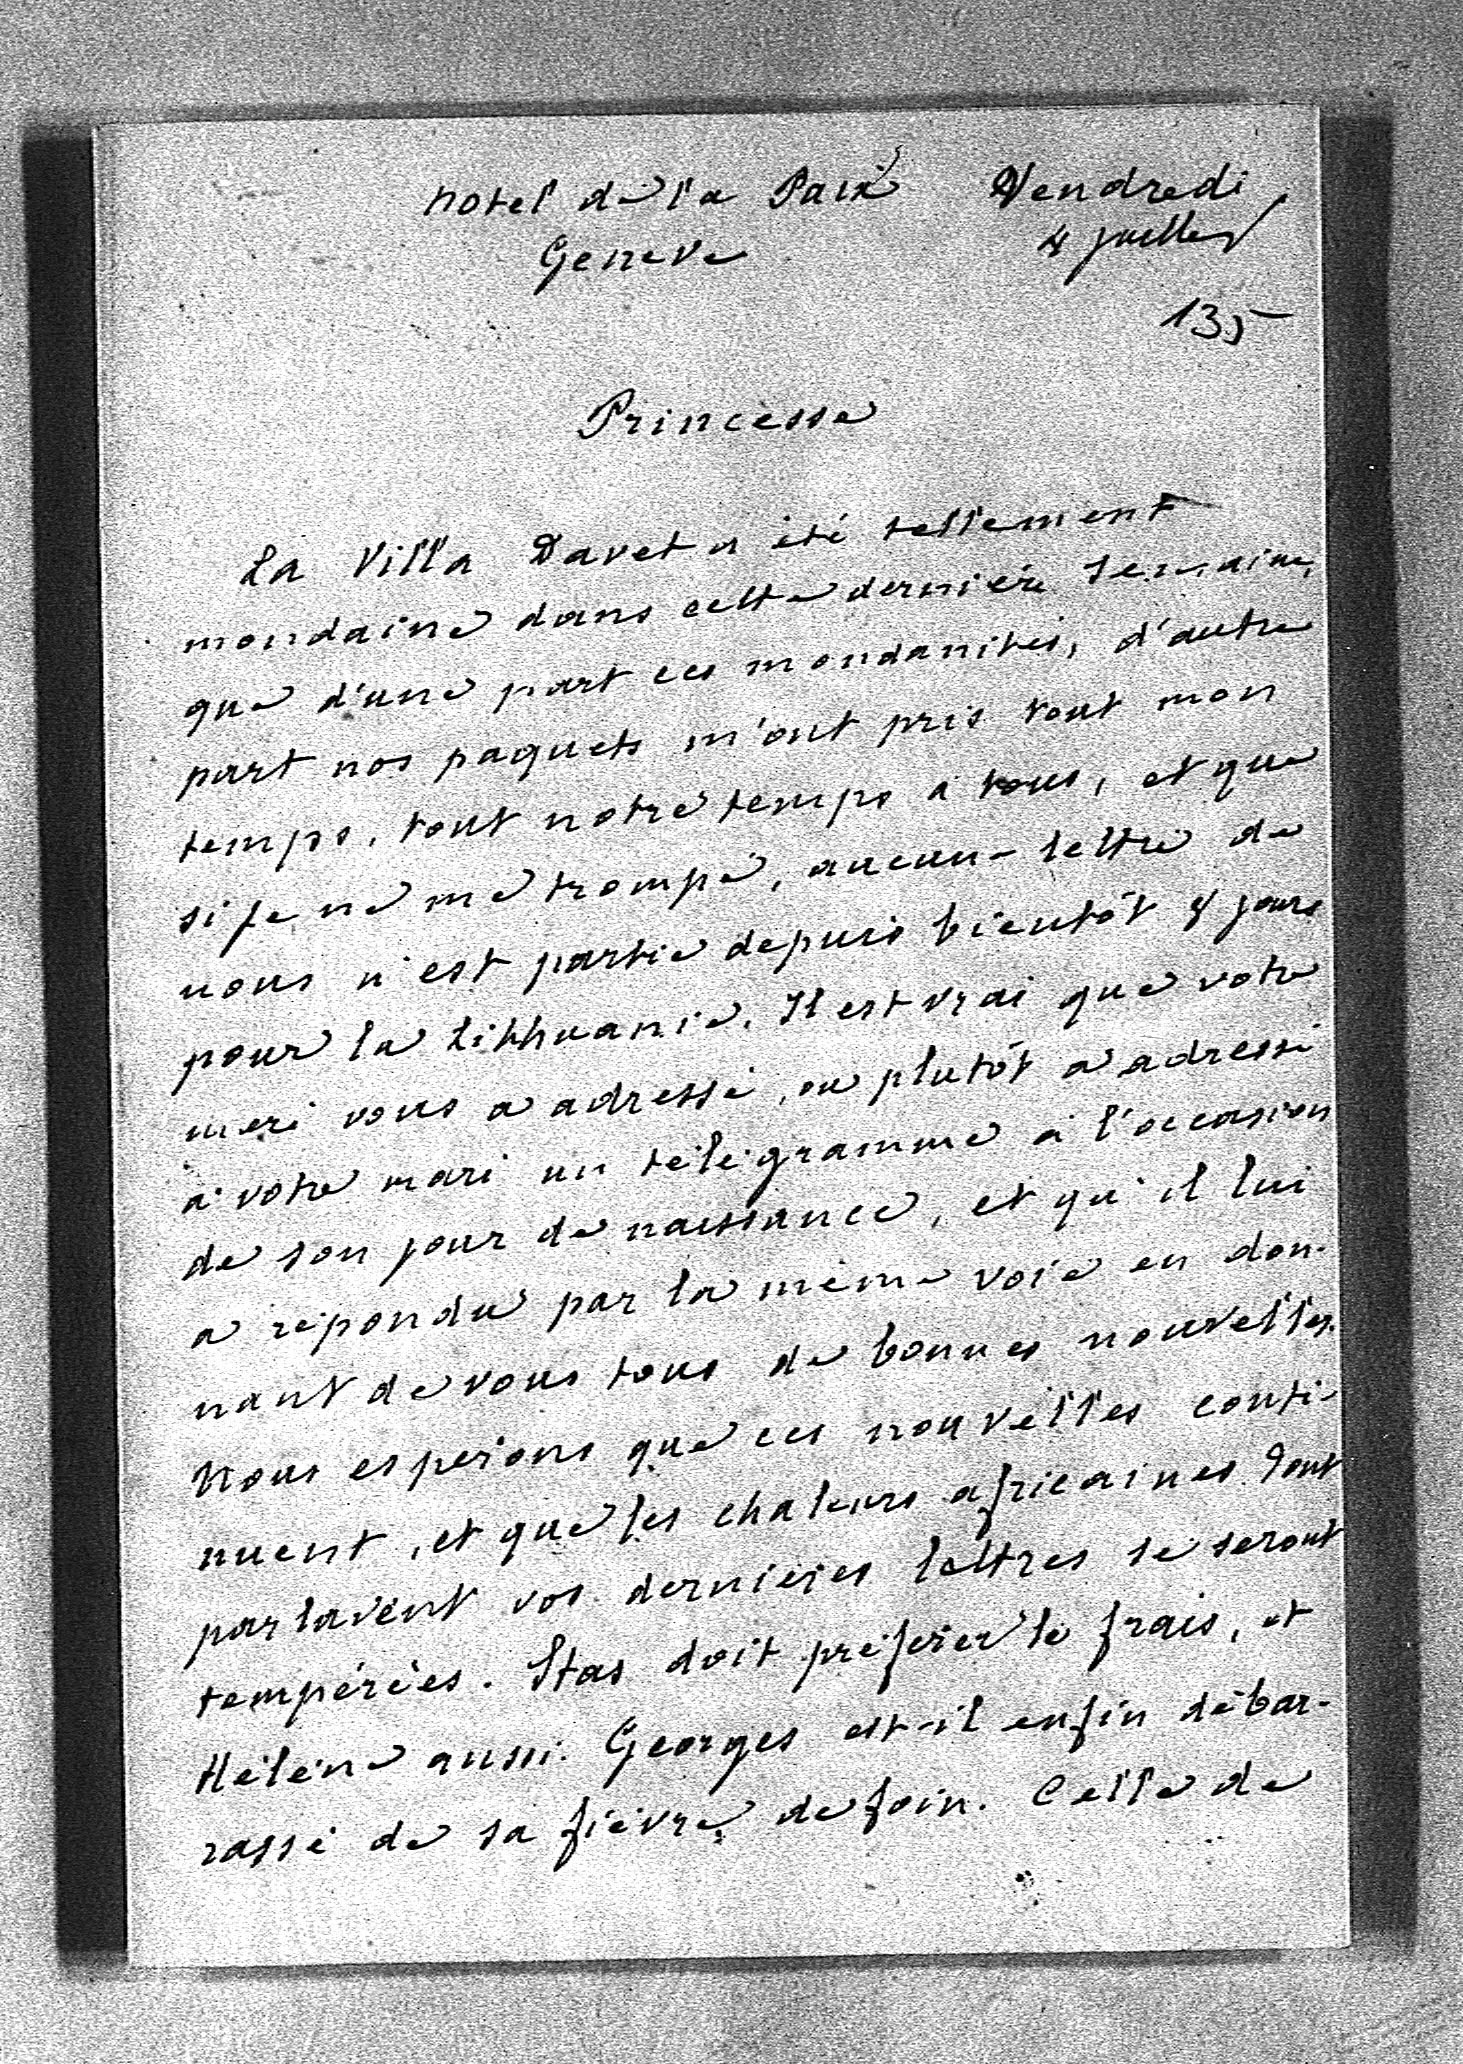 hotel de la Paix Vendredi
Geneve 4 juillet
135
Princesse
La Villa Davet a été tellement
mondaine dans cette dernière semaine,
que d'une part ces mondanités, d'autre
part nos paquets m'ont pris tout mon
temps, tout notre temps à tous, et que
si je ne me trompe, aucune lettre de
nous n'est partie depuis bientôt 8 jours
pour la Lithuanie. Il est vrai que votre
meri vous a adressé, ou plutôt a adressé
à votre mari un télégramme à l'occasion
de son jour de naissance, et qu'il lui
a répondu par la même voie en don-
nant de vous tous de bonnes nouvelles.
Nous esperons que ces nouvelles conti-
nuent, et que les chaleurs africaines dont
parlaient vos dernières lettres se seront
tempérées. Stas doit préférer le frais, et
Hélène aussi. Georges est-il enfin débar-
rassé de sa fièvre de foin. Celle de